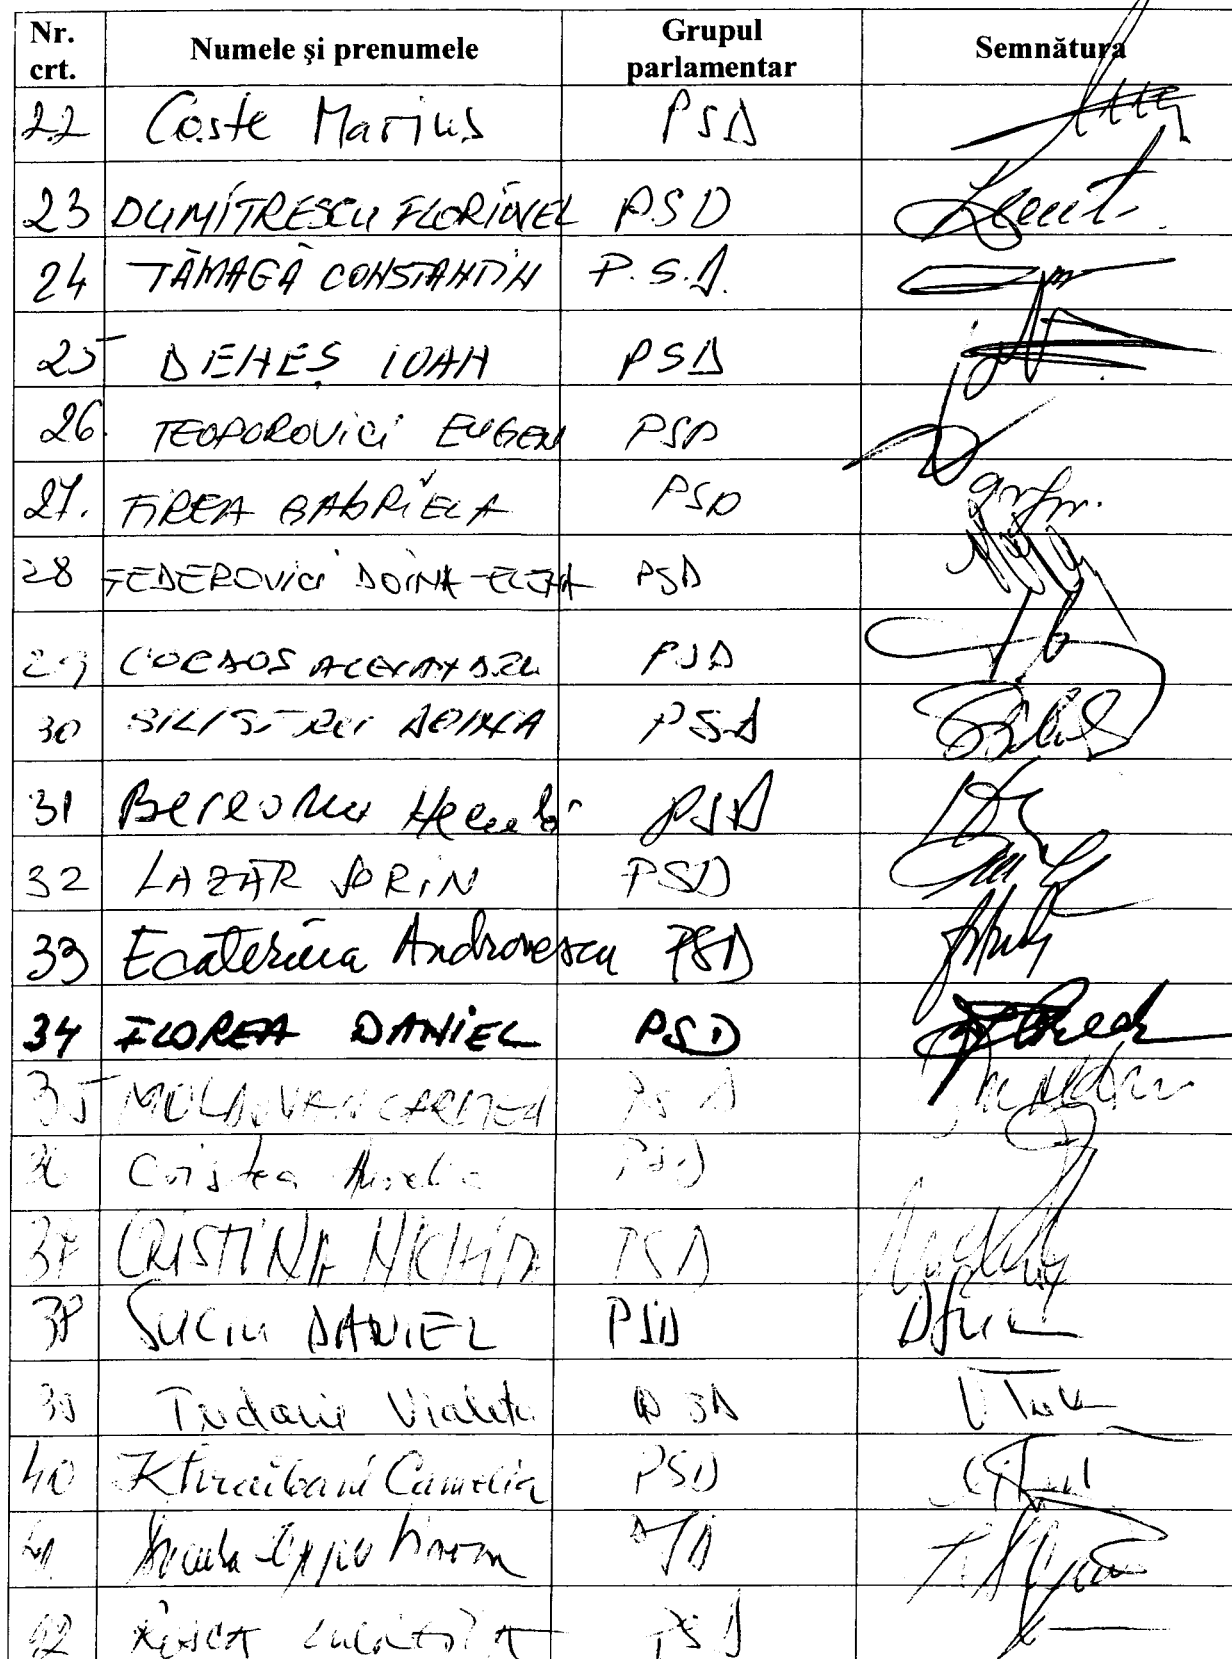 Nr. crt. Numele și prenumele Grupul parlamentar Semnătura
22 Coste Marius PSD
23 DUMITRESCU FLORINEL PSD
24 TÂMAGĂ CONSTANTIN P.S.D.
25 DENEȘ IOAN PSD
26. TEODOROVICI EUGEN PSD
27. FIREA GABRIELA PSD
28 FEDEROVICI DOINA-ELENA PSD
29 CORDOS ALEXANDRU PSD
30 SILISTRU DOINA PSD
31 PSD
32 LAZĂR SORIN PSD
33 Ecaterina Andronescu PSD
34 FLOREA DANIEL PSD
35 MOLDOVAN CARMEN PSD
36 Cristea Aurelia PSD
37 CRISTINA NICHITA PSD
38 SUCIU DANIEL PSD
39 Tudorie Violeta PSD
40 Khraibani Camelia PSD
41 PSD
42 PSD